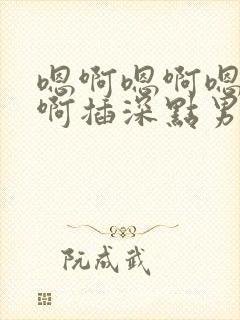 嗯啊嗯啊嗯
啊插深點男
阮成武